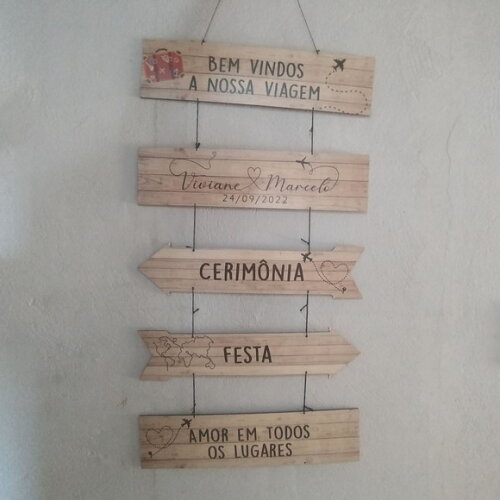 BEM VINDOS
A NOSSA VIAGEM
Viviane Marcelo
24/09/2022
CERIMÔNIA
FESTA
AMOR EM TODOS
OS LUGARES